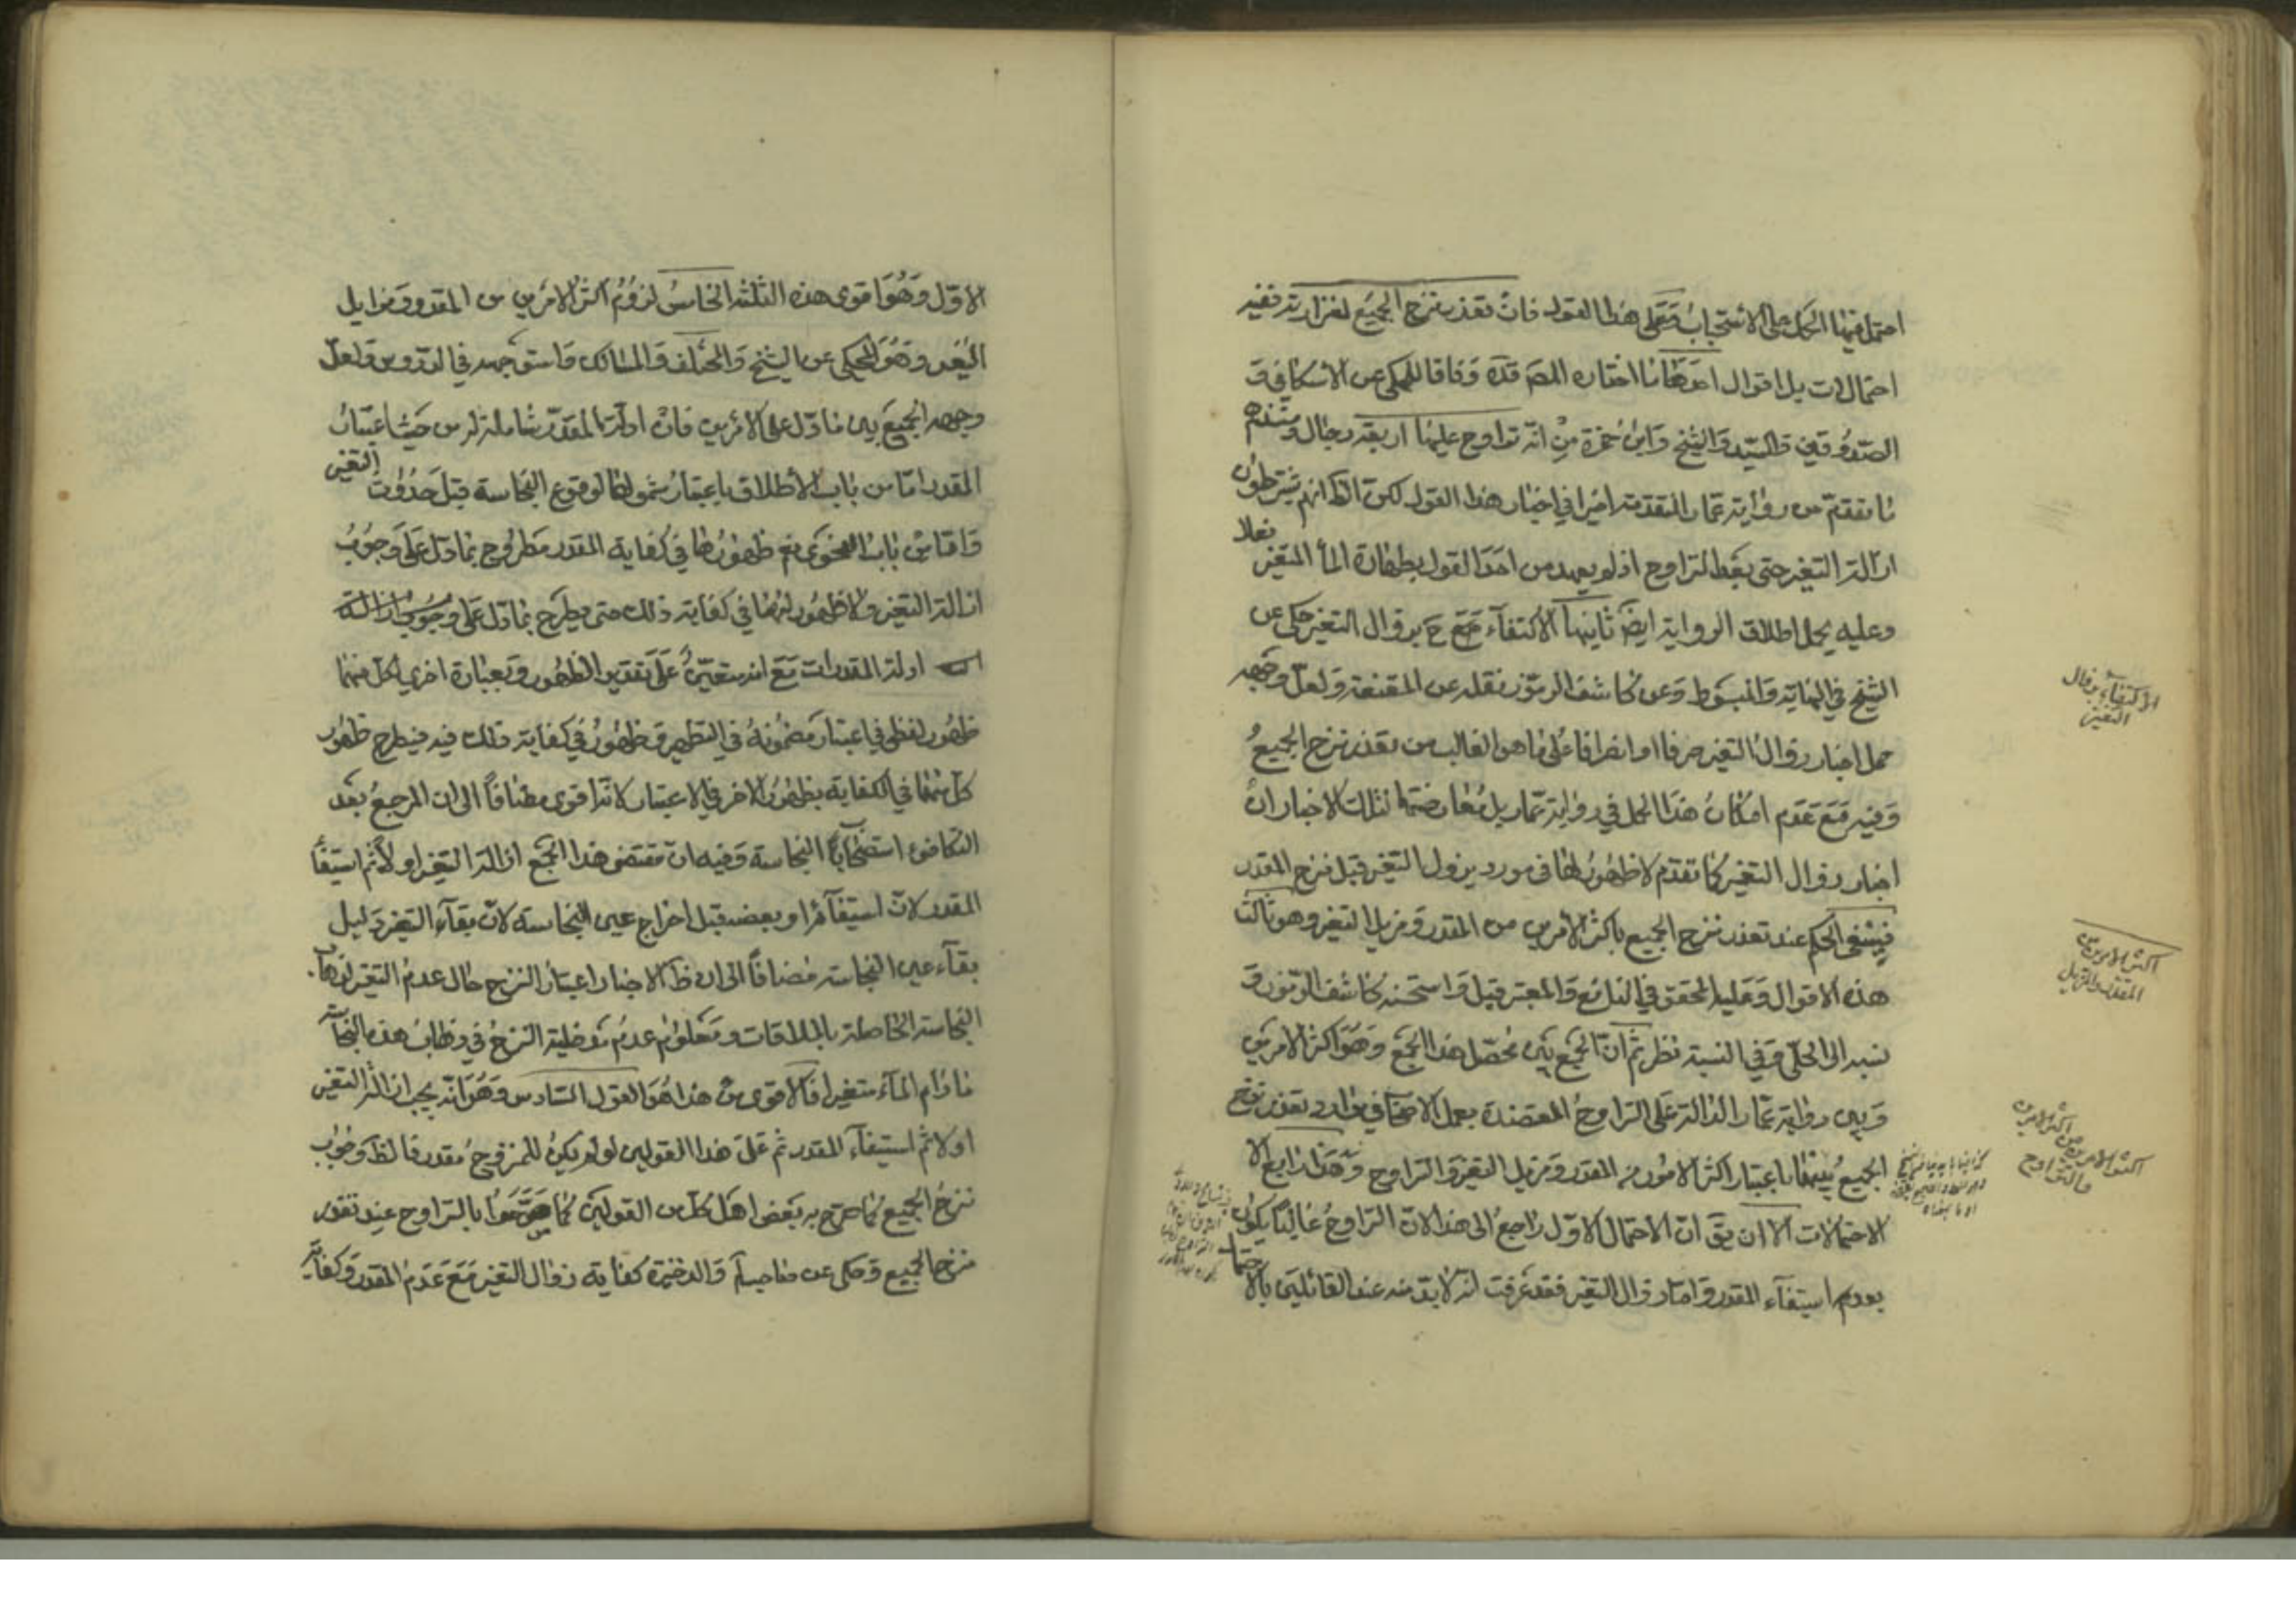 احتمل فيها الكل على الاستحباب وعلى هذا القول فان تعذر نزح الجميع لغزارته ففيه
احتمالات بل اقوال احوطها ما اختاره المصـ قده وفاقا للمحكي عن الاسكافي و
الصدوقين والسيد والشيخ وابن حمزة من انه تراوح عليها اربعة رجال ومستندهم
ما تقدم من رواية عمار المتقدمة اخيرا في اخبار هذا القول لكن الظ انهم يشترطون
ازالة التغير حتى بعد التراوح اذ لم يعهد من احد القول بطهارة الماء المتغير فعلا
وعليه يحمل اطلاق الرواية ايضا ثانيها الاكتفاء مع ح بزوال التغير حكي عن
الشيخ في النهاية والمبسوط وعن كاشف الرموز نقله عن المقنعة ولعل وجهه
حمل اخبار زوال التغير صرفا او انصرافا على ما هو الغالب من تعذر نزح الجميع
وفيه مع عدم امكان هذا الحمل في رواية عمار بل معارضتها لتلك الاخبار ان
اخبار زوال التغير كما تقدم لا ظهور لها في مورد يزول التغير قبل نزح المقدر
فينبغي الحكم عند تعذر نزح الجميع باكثر الامرين من المقدر ومزيل التغير وهو ثالث
هذه الاقوال وعليه المحقق في الشرائع والمعتبر قيل واستحسنه كاشف الرموز و
نسبه الى الحلي وفي النسبة نظر ثم ان الجمع بين محصل هذا الجمع وهو اكثر الامرين
وبين رواية عمار الدالة على التراوح المعتضدة بعمل الاصحاب في موارد تعذر نزح
الجميع يقتضي اعتبار اكثر الامور من المقدر ومزيل التغير والتراوح وهذا رابع الا
الاحتمالات الا ان يق ان الاحتمال الاول راجع الى هذا لان التراوح غالبا يكون
بعد استيفاء المقدر واما زوال التغير فقد عرفت انه لا بد منه عند القائلين بالاحتمال
الاكتفاء بزوال
التغير
اكثر الامرين من
المقدر والمزيل
اكثر الامرين من اكثر الامرين
والتراوح
الاول وهو اقوى هذه الثلثة الخامس لزوم اكثر الامرين من المقدر ومزايل
التغير وهو المحكي عن الشيخ والمختلف والمسالك واستوجهه في الدروس ولعل
وجهه الجمع بين ما دل على الامرين فان ادلة المقدر شاملة له من حيث اعتبار
المقدر اما من باب الاطلاق باعتبار شمولها لوقوع النجاسة قبل حدوث التغير
واما من باب الفحوى نعم ظهورها في كفاية المقدر مطروح بما دل على وجوب
ازالة التغير ولا ظهور لها في كفاية ذلك حتى يطرح بما دل على وجوب ازالة
ادلة المقدرات مع انه متعين على تقدير الظهور وبعبارة اخرى لكل منهما
ظهور لفظي في اعتبار مضمونه في التطهير وظهور في كفاية ذلك فيه فيطرح ظهور
كل منهما في الكفاية بظهور الاخر في الاعتبار لانه اقوى مضافا الى ان المرجع بعد
التكافؤ استصحاب النجاسة وفيه ان مقتضى هذا الجمع ازالة التغير اولا ثم استيفاء
المقدر لان استيفائه او بعضه قبل اخراج عين النجاسة لان بقاء التغير دليل
بقاء عين النجاسة مضافا الى ان ظ الاخبار اعتبار النزح حال عدم التغير لاذهاب
النجاسة الحاصلة بالملاقات ومعلوم عدم مدخلية النزح في ذهاب هذه النجاسة
ما دام الماء متغيرا فالاقوى من هذا هو القول السادس وهو انه يجب ازالة التغير
اولا ثم استيفاء المقدر ثم على هذا القولين لو لم يكن للمنزوح مقدر فالظ وجوب
نزح الجميع كما صرح به بعض اهل كل من القولين كما صرحوا بالتراوح عند تعذر
نزح الجميع وحكى عن صاحب لم والذخيرة كفاية زوال التغير مع عدم المقدر وكفاية